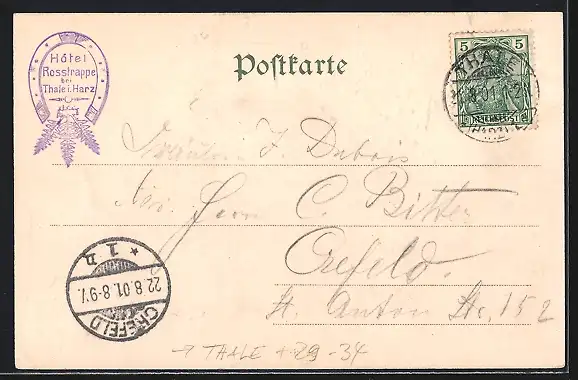 Hôtel
Rosstrappe
bei
Thale i. Harz
Postkarte
5 5
THALE
(HARZ)
Fräulein F. Dubois
Adr. Herrn C. Bitter
Crefeld.
St. Anton Str. 152
CREFELD
22.8.01.8-9V.
* 1 n
→ THALE + 29 - 34